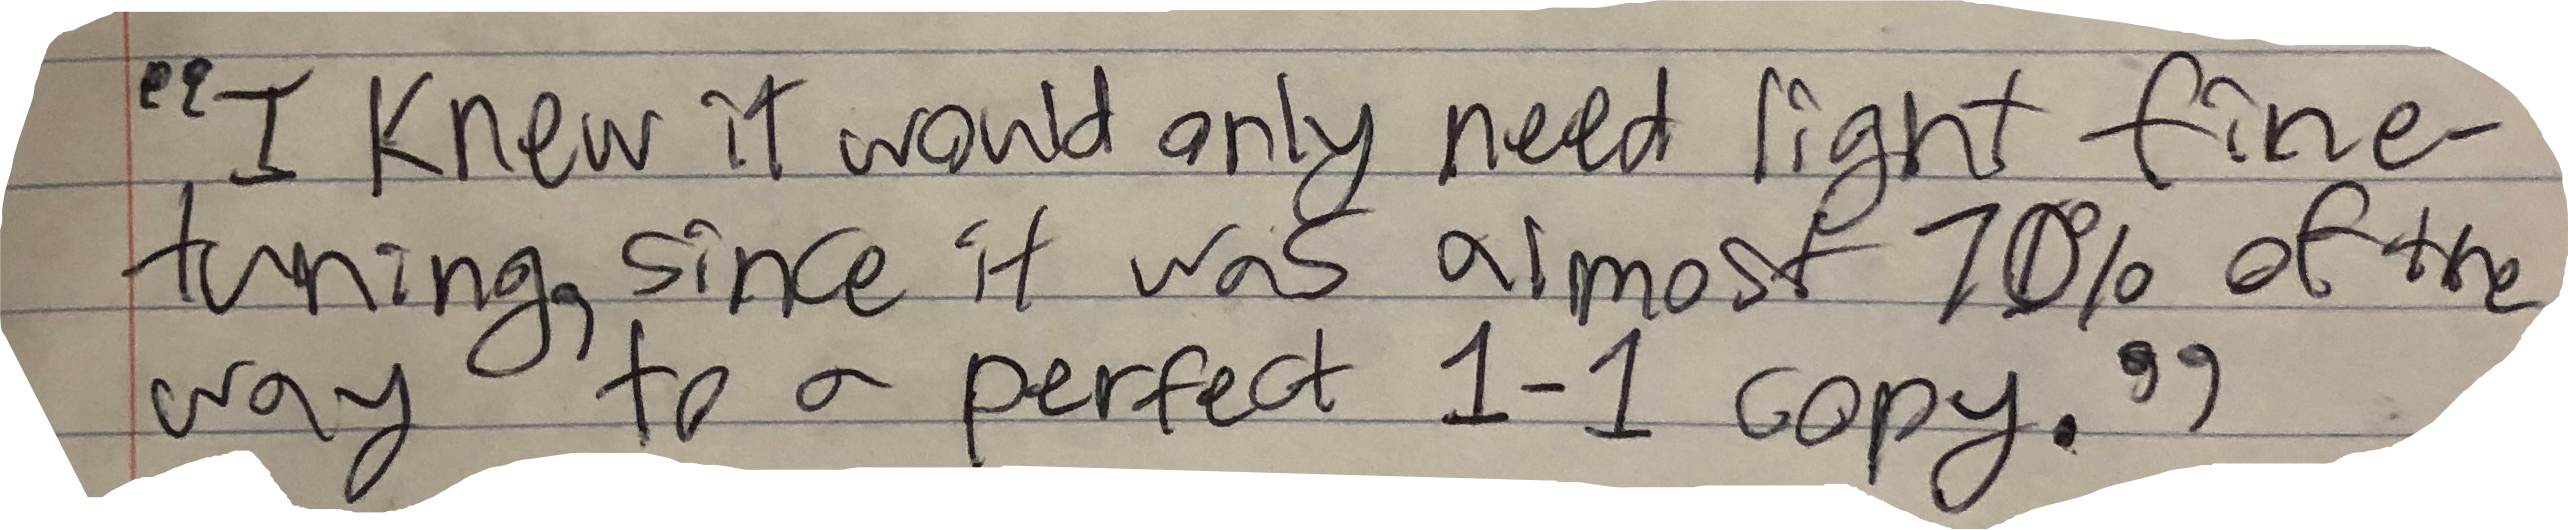 “I Knew it would only need light fine-
tuning, since it was almost 70% of the
way to a perfect 1-1 copy.”